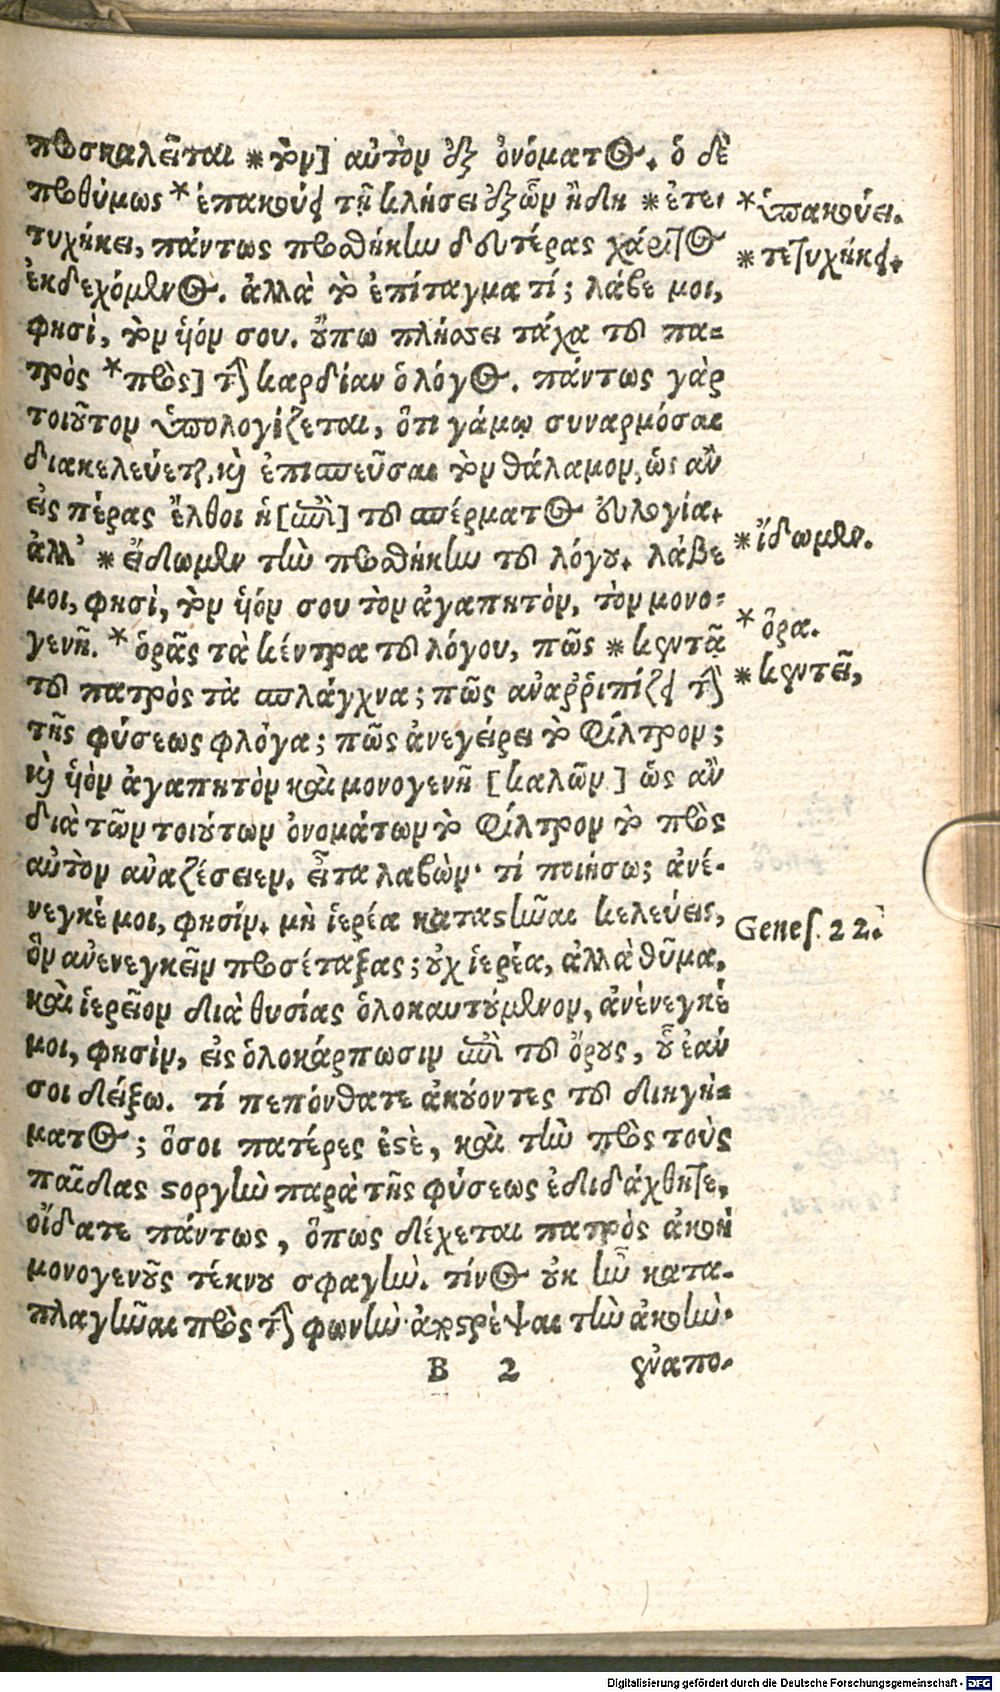 προσκαλεῖται *τὸν] αὐτὸν ἐξ ὀνόματος. ὁ δὲ
προθύμως * ἐπακούει τῇ κλήσει ἐξ ὧν ἤδη *ἐτε-
τυχήκει, πάντως προσθήκην δευτέρας χάριτος
ἐκδεχόμενος. ἀλλὰ τὸ ἐπίταγμα τί; λάβε μοι,
φησὶ, τὸν υἱόν σου. οὔπω πλήσσει τάχα τοῦ πα-
τρὸς *πρὸς] τὴν καρδίαν ὁ λόγος. πάντως γὰρ
τοιοῦτον ὑπολογίζεται, ὅτι γάμῳ συναρμόσαι
διακελεύεται, καὶ ἐπισπεῦσαι τὸν θάλαμον, ὡς ἂν
εἰς πέρας ἔλθοι ἡ [ἐπὶ] τοῦ σπέρματος εὐλογία.
ἀλλ' * εἴδωμεν τὴν προσθήκην τοῦ λόγου. λάβε
μοι, φησὶ, τὸν υἱόν σου τὸν ἀγαπητὸν, τὸν μονο-
γενῆ. * ὁρᾷς τὰ κέντρα τοῦ λόγου, πῶς *κεντᾷ
τοῦ πατρὸς τὰ σπλάγχνα; πῶς ἀναῤῥιπίζει τὴν
τῆς φύσεως φλόγα; πῶς ἀνεγείρει τὸ φίλτρον;
καὶ υἱὸν ἀγαπητὸν καὶ μονογενῆ [καλῶν] ὡς ἂν
διὰ τῶν τοιούτων ὀνομάτων τὸ φίλτρον τὸ πρὸς
αὐτὸν ἀναζέσειεν. εἶτα λαβὼν· τί ποιήσω; ἀνέ-
νεγκέ μοι, φησίν. μὴ ἱερέα καταστῆναι κελεύεις,
ὃν ἀνενεγκεῖν προσέταξας; οὐχ ἱερέα, ἀλλὰ θῦμα,
καὶ ἱερεῖον διὰ θυσίας ὁλοκαυτούμενον, ἀνένεγκέ
μοι, φησὶν, εἰς ὁλοκάρπωσιν ἐπὶ τοῦ ὄρους, οὗ ἐάν
σοι δείξω. τί πεπόνθατε ἀκούοντες τοῦ διηγή-
ματος; ὅσοι πατέρες ἐστὲ, καὶ τὴν πρὸς τοὺς
παῖδας στοργὴν παρὰ τῆς φύσεως ἐδιδάχθητε,
οἴδατε πάντως, ὅπως δέχεται πατρὸς ἀκοὴ
μονογενοῦς τέκνου σφαγήν. τίνος οὐκ ἦν κατα-
πλαγῆναι πρὸς τὴν φωνὴν· ἀποστρέψαι τὴν ἀκοὴν·
B 2 ἐναπο-
*ὑπακούει.
*τετυχήκει.
*ἴδωμεν.
* ὅρα.
*κεντεῖ,
Genes. 22.
Digitalisierung gefördert durch die Deutsche Forschungsgemeinschaft - DFG